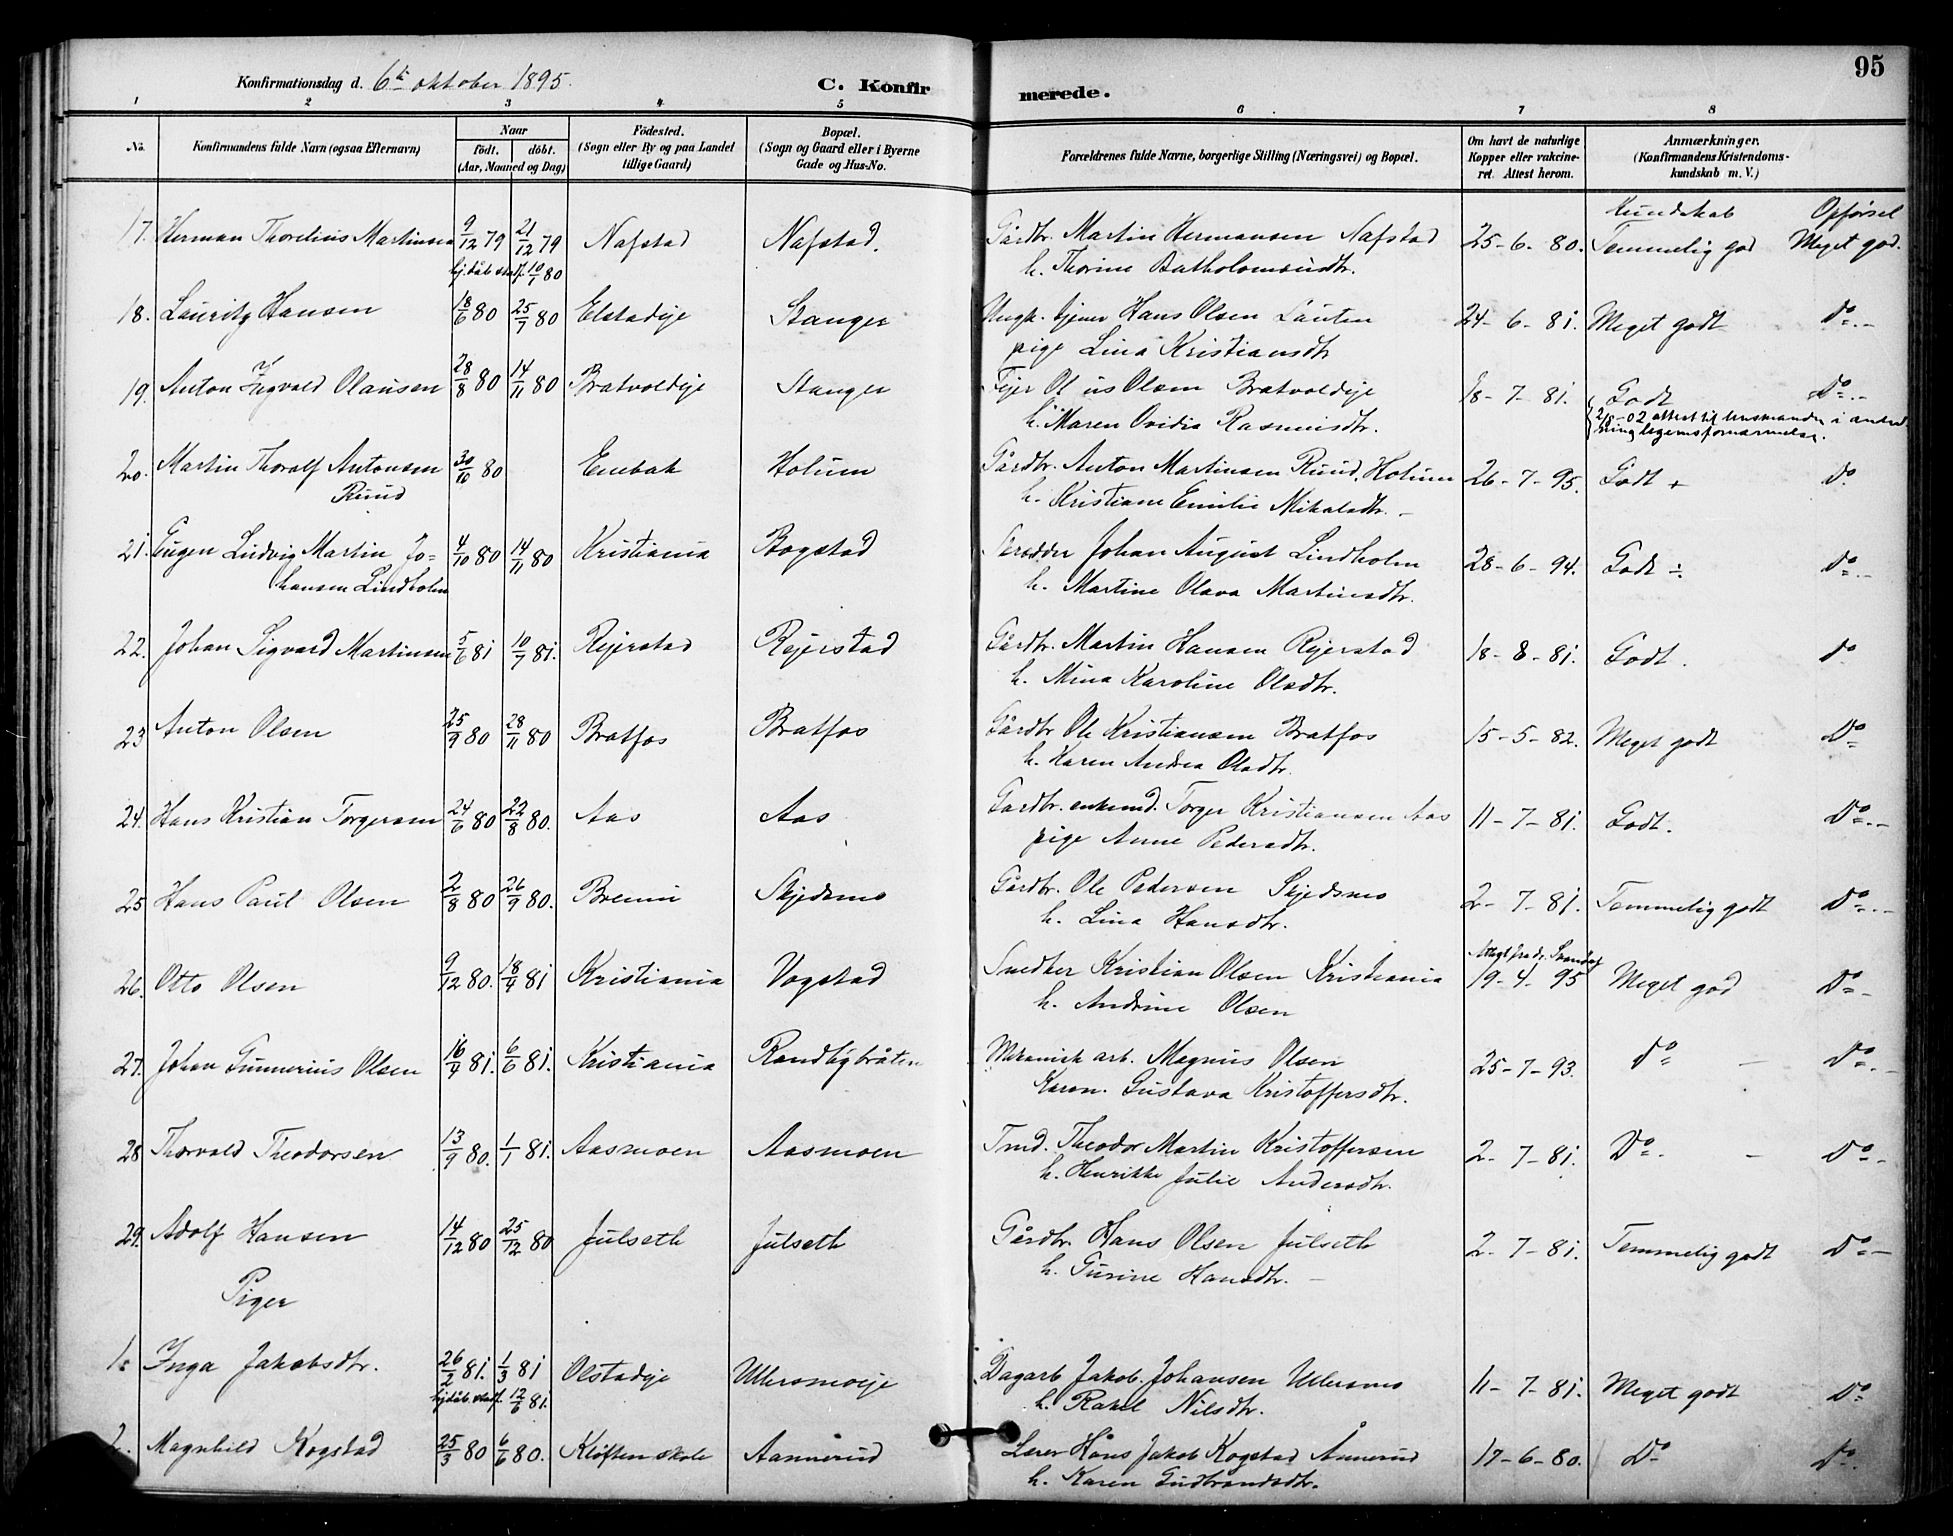 95
Konfirmationsdag d. 6te oktober 1895. C. Konfirmerede.
1 2 3 4 5 6 7 8
No. Konfirmandens fulde Navn (ogsaa Efternavn) Naar födt. döbt. (Aar, Maaned og Dag) Födested. (Sogn eller By og paa Landet tillige Gaard) Bopæl. (Sogn og Gaard eller i Byerne Gade og Hus-No. Forældrenes fulde Navne, borgerlige Stilling (Næringsvei) og Bopæl. Om havt de naturlige Kopper eller vakcineret. Attest herom. Anmærkninger. (Konfirmandens Kristendomskundskab m. V.)
Kundskab Opførsel
17. Herman Thorelius Martinsen 9/12 79 21/12 79 Nafstad Nafstad. Gårdbr. Martin Hermansen Nafstad 25-6-80. Temmelig god Meget god.
hj.dåb stadf. 10/7 80 h. Thorine Batholomæusdtr.
18. Lauritz Hansen 18/6 80 25/7 80 Elstadeje Stanger Ungk. tjener Hans Olsen Lauten 24-6-81. Meget godt Do
pige Lina Kristiansdtr
19. Anton Ingvald Olausen 28/8 80 14/11 80 Bratvoldeje Stanger Fejer Olaus Olsen Bratvoldeje 18-7-81. Godt Do
h. Maren Ovidia Rasmusdtr. attest til lensmanden i anledning legemsfornærmelse.
20. Martin Thoralf Antonsen 30/10 80 Enebak Holum Gårdbr. Anton Martinsen Ruud, Holum 26-7-95. Godt + Do
Ruud h. Kristiane Emilie Mikalsdtr. -
21. Eugen Ludvig Martin Jo= 4/10 80 14/11 80 Kristiania Bogstad Skrædder Johan August Lindholm 28-6-94. Godt ÷ Do
hansen Lindholm h. Martine Olava Martinsdtr.
22. Johan Sigvard Martinsen 5/6 81 10/7 81. Rejerstad Rejerstad Gårdbr. Martin Hansen Rejerstad 18-8-81. Godt. Do
h. Mina Karoline Olsdtr.
23 Anton Olsen 25/9 80 28/11 80 Bratfos Bratfos Gårdbr Ole Kristiansen Bratfos 15-5-82. Meget godt Do
h. Karen Andrea Olsdtr.
24. Hans Kristian Torgersen 24/6 80 22/8 80. Aas Aas Gardbr. enkemd. Torger Kristiansen Aas 11-7-81. Godt. Do
pige Anne Pedersdtr.
25 Hans Paul Olsen 2/8 80 26/9 80. Brenni Skjedsmo Gårdbr. Ole Pedersen Skjedsmo 2-7-81. Temmelig godt Do
h. Lina Hansdtr.
26. Otto Olsen 9/12 80. 18/4 81 Kristiania Vogstad Snedker Kristian Olsen Kristiania 19-4-95 Meget god Do
h. Andrine Olsen
27. Johan Gunnerius Olsen 16/4 81. 6/6 81. Kristiania Randbybråten Mekanisk arb. Magnus Olsen 25-7-93. Do Do
Karen Gustava Kristoffersdtr.
28 Thorvald Theodorsen 13/9 80. 1/1 81. Aasmoen Aasmoen Tmd. Theodor Martin Kristoffersen 2-7-81. Do. Do
h. Henrikke Julie Andersdtr.
29. Adolf Hansen 14/12 80 25/12 80 Julseth Julseth Gårdbr. Hans Olsen Julseth 2-7-81. Temmelig godt Do
h. Gurine Hansdtr.
Piger
1. Inga Jakobsdtr. 26/2 81. 1/3 81 Olstadeje Ullersmoeje Dagarb Jakob Johansen Ullersmo 11-7-81. Meget godt Do
hj.dåb stadf. 12/6 81. h. Rakel Nilsdtr.
2. Magnhild Kogstad 25/3 80 6/6 80. Kløften skole Aannerud Lærer Hans Jakob Kogstad Ånnerud 17-6-80. Do Do
h. Karen Gudbrandsdtr.